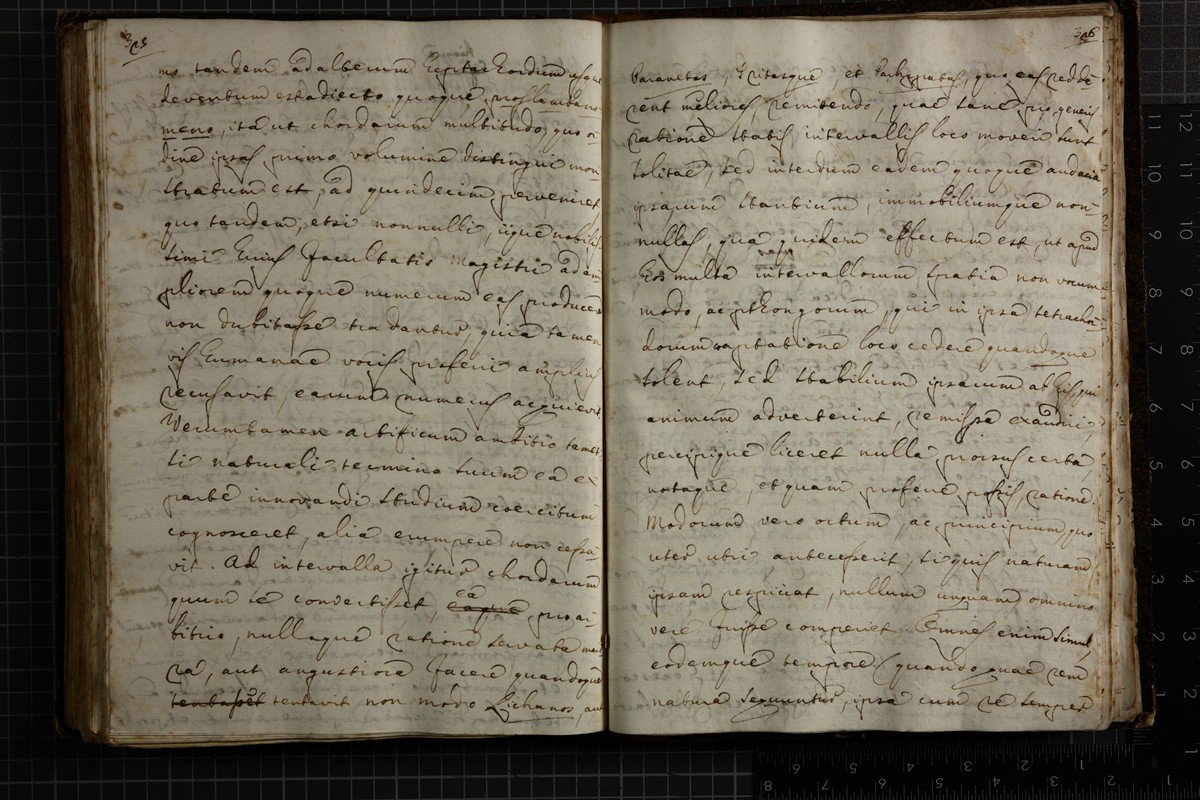 325
mo tandem ad alterum heptachordum usque
deventum est adiecto quoque proslambano-
meno, ita ut chordarum multitudo, quo or
dine ipsas primo volumine distingui mon-
stratum est, ad quindecim perveniret,
quo tandem, etsi nonnulli, iique nobilis
simi huius facultatis Magistri ad am
pliorem quoque numerum eas producere
non dubitasse tradantur, quia tamen
vis humanae vocis proferri amplius
recusavit, earum numerus acquievit.
Verumtamen artificum ambitio tamet
si naturali termino suum ea ex
parte innovandi studium coercitum
cognosceret, alia erumpere non cessa
vit. Ad intervalla igitur chordarum
quum se convertisset, eaque ea pro ar
bitrio, nullaque ratione servata modo
ra, aut angustiora facere quandoque
tentasset tentavit, non modo Lichanos, aut
326
Paranetas, Tritasque, et Parhypatas, quo eas redde
rent meliores, remittendo, quae sane pro generis
ratione statis intervallis loco moveri sunt
solitae, sed interdum eadem quoque audacia
ipsarum stantium, immobiliumque non-
nullas, qua quidem effectum est, ut apud
Eos multa intervallorum spatia non vocum
modo, ac phthongorum, qui in ipsa tetrachor-
dorum aptatione loco cedere quandoque
solent, sed stabilium ipsarum ab his, qui
animum adverterint, remissa exaudiri,
percipique liceret nulla prorsus certa
notaque, et quam proferre possis ratione.
Modorum vero ortum, ac principium, quo
uter utri antecesserit, si quis naturam
ipsam respiciat, nullum unquam omnino
vere fuisse comperiet. Omnes enim simul,
eodemque tempore (quando quae rem
natura sequuntur, ipsa cum re semper